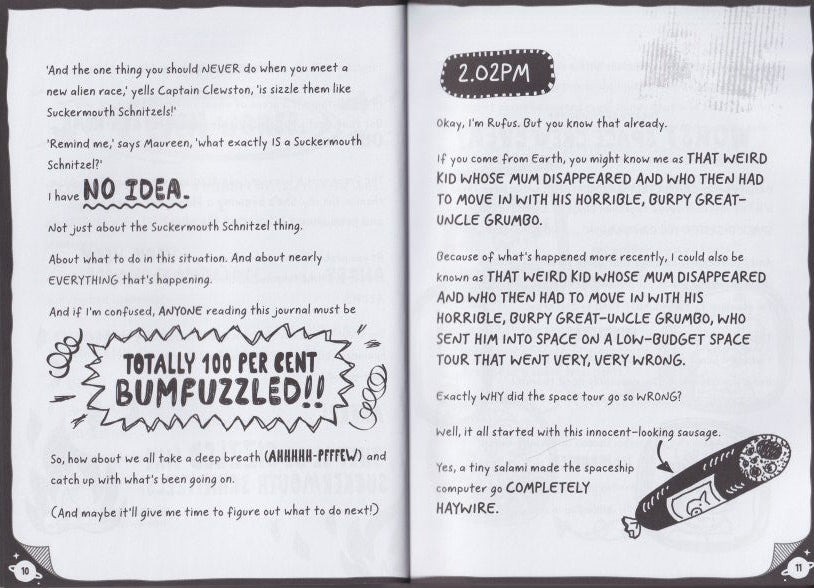 'And the one thing you should NEVER do when you meet a
new alien race,' yells Captain Clewston, 'is sizzle them like
Suckermouth Schnitzels!'
'Remind me,' says Maureen, 'what exactly IS a Suckermouth
Schnitzel?'
I have NO IDEA.
Not just about the Suckermouth Schnitzel thing.
About what to do in this situation. And about nearly
EVERYTHING that's happening.
And if I'm confused, ANYONE reading this journal must be
TOTALLY 100 PER CENT
BUMFUZZLED!!
So, how about we all take a deep breath (AHHHHH-PFFFEW) and
catch up with what's been going on.
(And maybe it'll give me time to figure out what to do next!)
10
2.02PM
Okay, I'm Rufus. But you know that already.
If you come from Earth, you might know me as THAT WEIRD
KID WHOSE MUM DISAPPEARED AND WHO THEN HAD
TO MOVE IN WITH HIS HORRIBLE, BURPY GREAT-
UNCLE GRUMBO.
Because of what's happened more recently, I could also be
known as THAT WEIRD KID WHOSE MUM DISAPPEARED
AND WHO THEN HAD TO MOVE IN WITH HIS
HORRIBLE, BURPY GREAT-UNCLE GRUMBO, WHO
SENT HIM INTO SPACE ON A LOW-BUDGET SPACE
TOUR THAT WENT VERY, VERY WRONG.
Exactly WHY did the space tour go so WRONG?
Well, it all started with this innocent-looking sausage.
Yes, a tiny salami made the spaceship
computer go COMPLETELY
HAYWIRE.
11